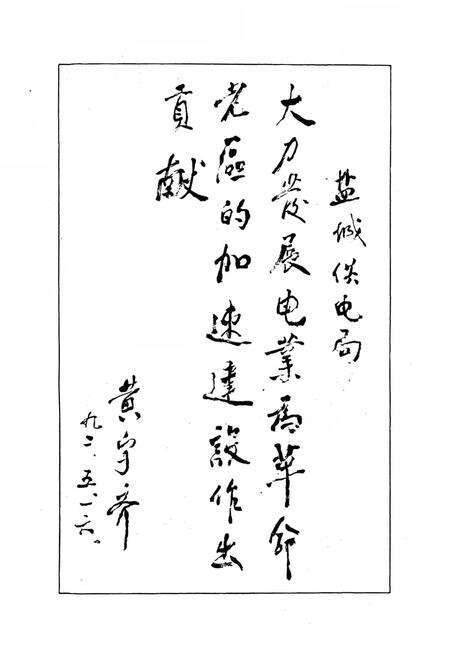 盐城供电局
大力发展电业為革命
老區的加速建設作出
貢献
黄宇齐
九二.五.一六.